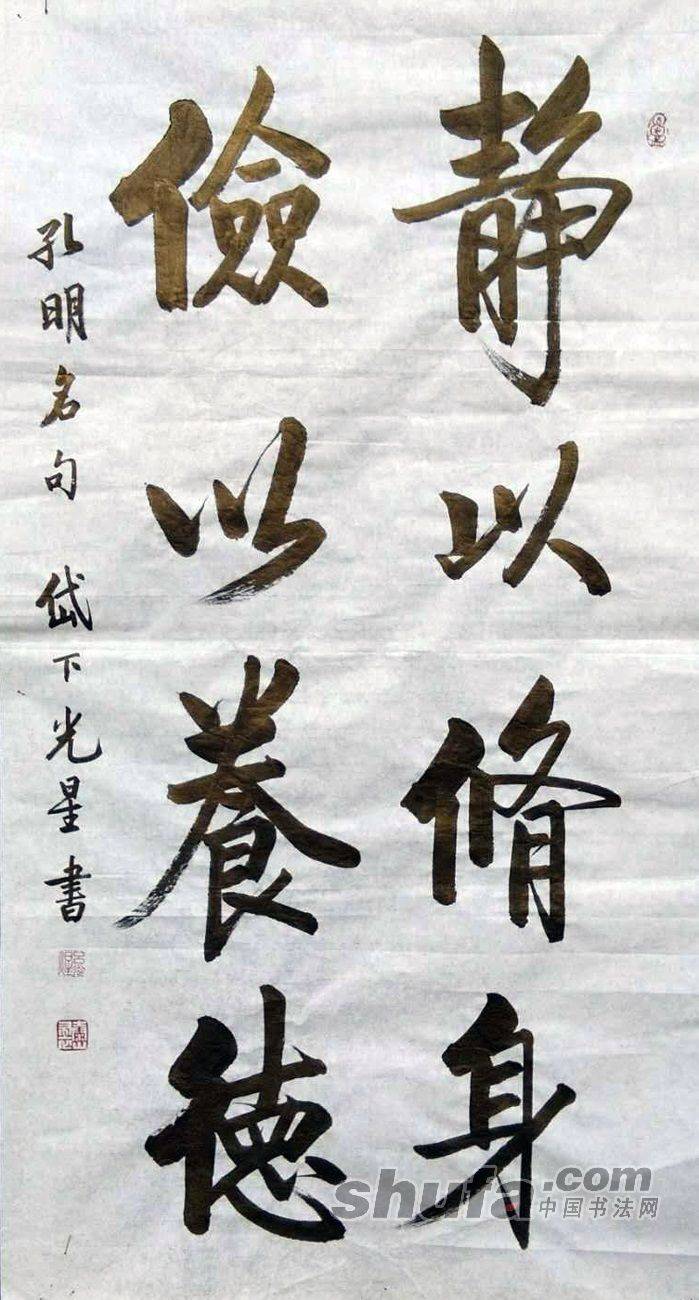 静以脩身
儉以養德
孔明名句 岱下光星書
shufa.com
中国书法网